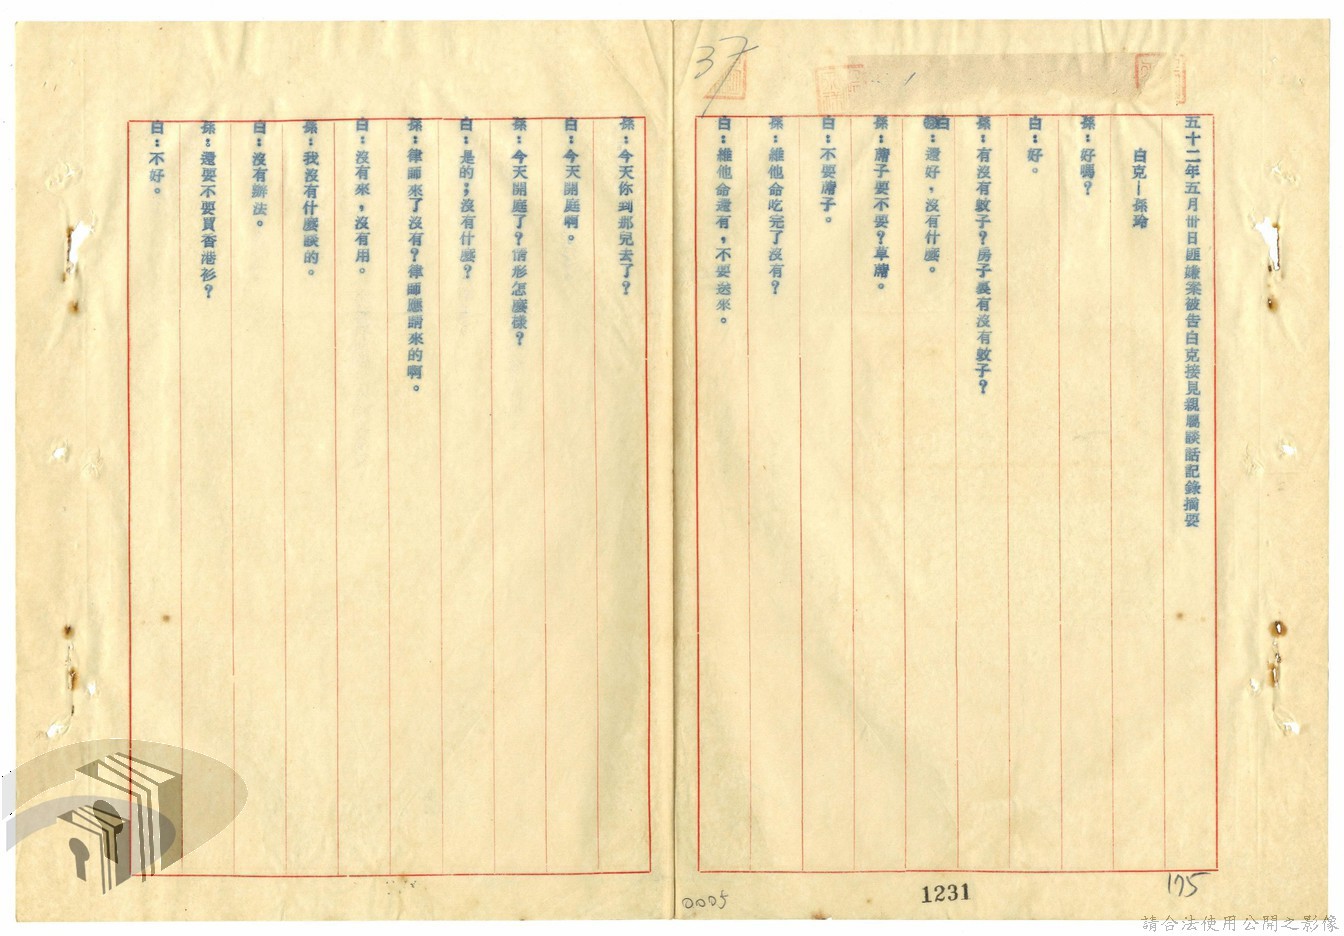 37
五十二年五月卅日匪嫌案被告白克接見親屬談話記錄摘要
白克—孫玲
孫:好嗎?
白:好。
孫:有沒有蚊子?房子裏有沒有蚊子?
白:還好,沒有什麼。
孫:蓆子要不要?草蓆。
白:不要蓆子。
孫:維他命吃完了沒有?
白:維他命還有,不要送來。
孫:今天你到那兒去了?
白:今天開庭啊。
孫:今天開庭了?情形怎麼樣?
白:是的;沒有什麼?
孫:律師來了沒有?律師應請來的啊。
白:沒有來,沒有用。
孫:我沒有什麼談的。
白:沒有辦法。
孫:還要不要買香港衫?
白:不好。
0005
1231
175
請合法使用公開之影像